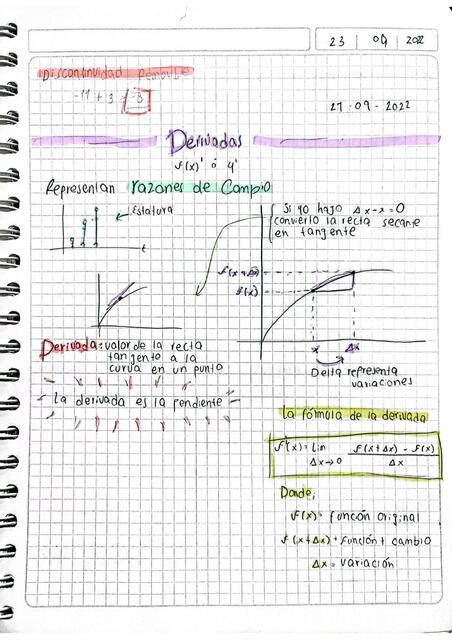 23 | 09 | 2022
Discontinuidad Removible
-11 + 3 = -8
27 - 09 - 2022
Derivadas
f(x)' ó y'
Representan razones de Cambio
Estatura
t
Si yo hago Δx->=0
convierto la recta secante
en tangente
f(x+Δx)
f(x)
x Δx
Delta representa
variaciones
Derivada: valor de la recta
tangente a la
curva en un punto
La derivada es la pendiente
La fórmula de la derivada
f'(x) = Lim f(x+Δx) - f(x)
Δx→0 Δx
Donde;
f(x) = función original
f(x+Δx) = función + cambio
Δx = variación